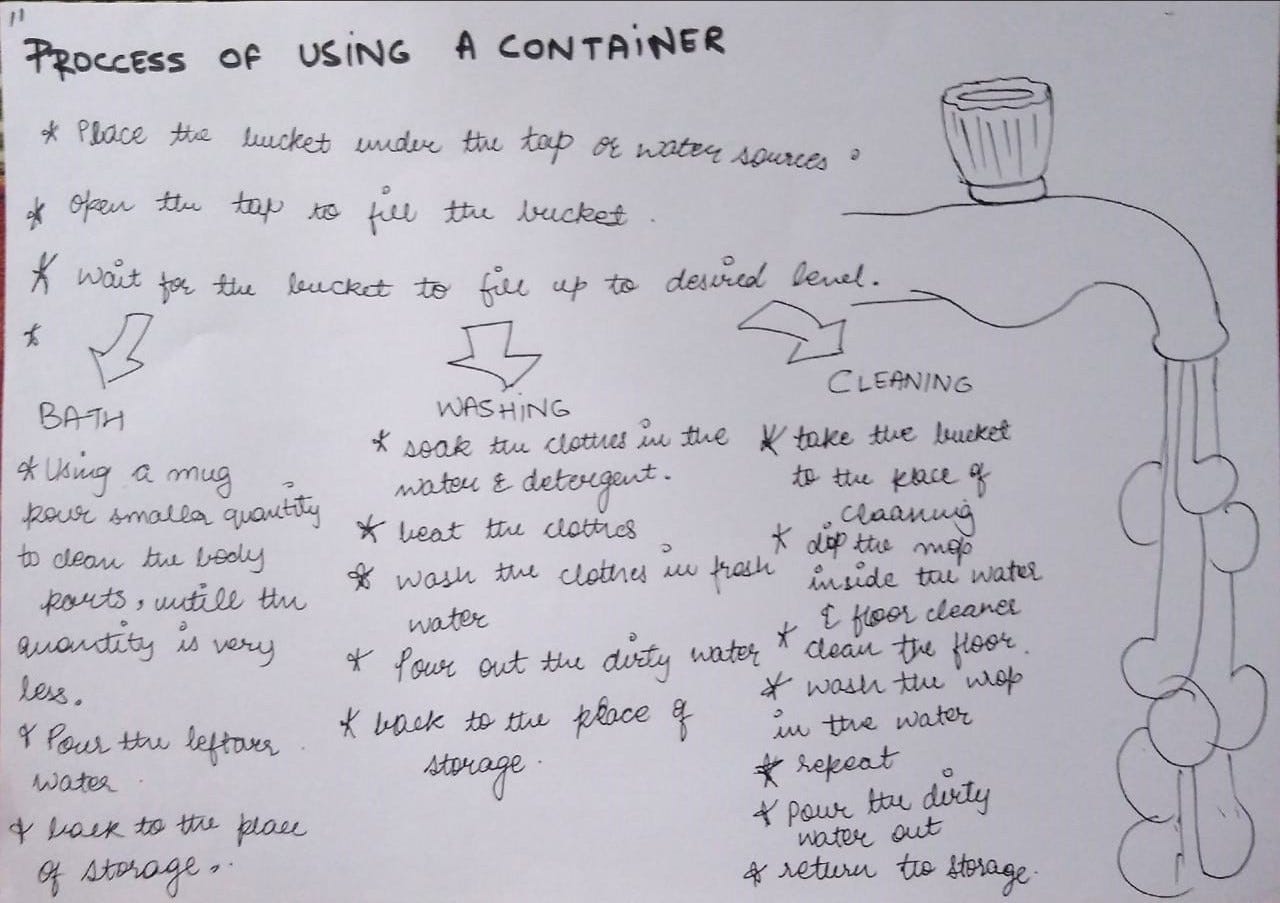 11
PROCCESS OF USING A CONTAINER
* Place the bucket under the tap or water sources.
* Open the tap to fill the bucket.
* Wait for the bucket to fill up to desired level.
*
BATH
* Using a mug
pour smaller quantity
to clean the body
parts, untill the
quantity is very
less.
* Pour the leftover
water.
* back to the place
of storage.
WASHING
* soak the clothes in the
water & detergent.
* beat the clothes
* wash the clothes in fresh
water
* Pour out the dirty water
* back to the place of
storage.
CLEANING
* take the bucket
to the place of
claaning
* dip the mop
inside the water
& floor cleaner
* clean the floor.
* wash the mop
in the water
* repeat
* Pour the dirty
water out
* return to storage.